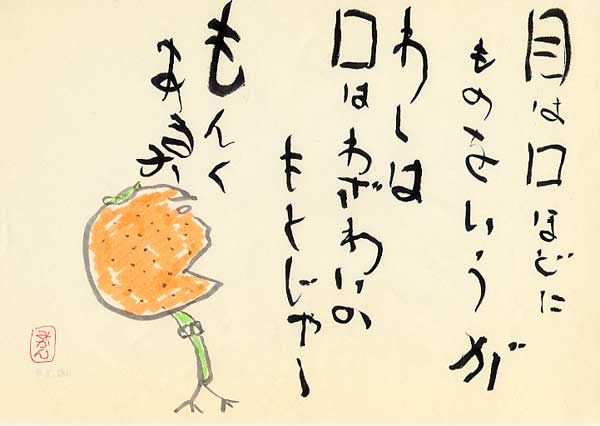 目は口ほどに
ものをいうが
わしは
口はわざわいの
もとじゃー
もんく